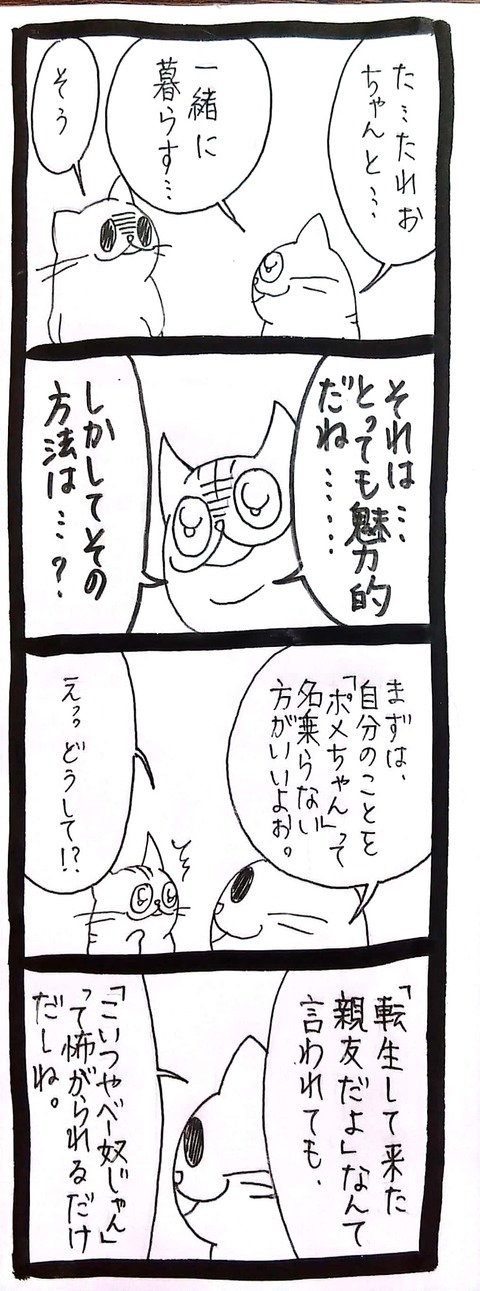 た…たれお
ちゃんと…
一緒に
暮らす…
そう
それは…
とっても魅力的
だね……
しかしてその
方法は…?
まずは、
自分のことを
「ポメちゃん」って
名乗らない
方がいいよお。
えっどうして!?
「転生して来た
親友だよ」なんて
言われても、
「こいつやべー奴じゃん」
って怖がられるだけ
だしね。